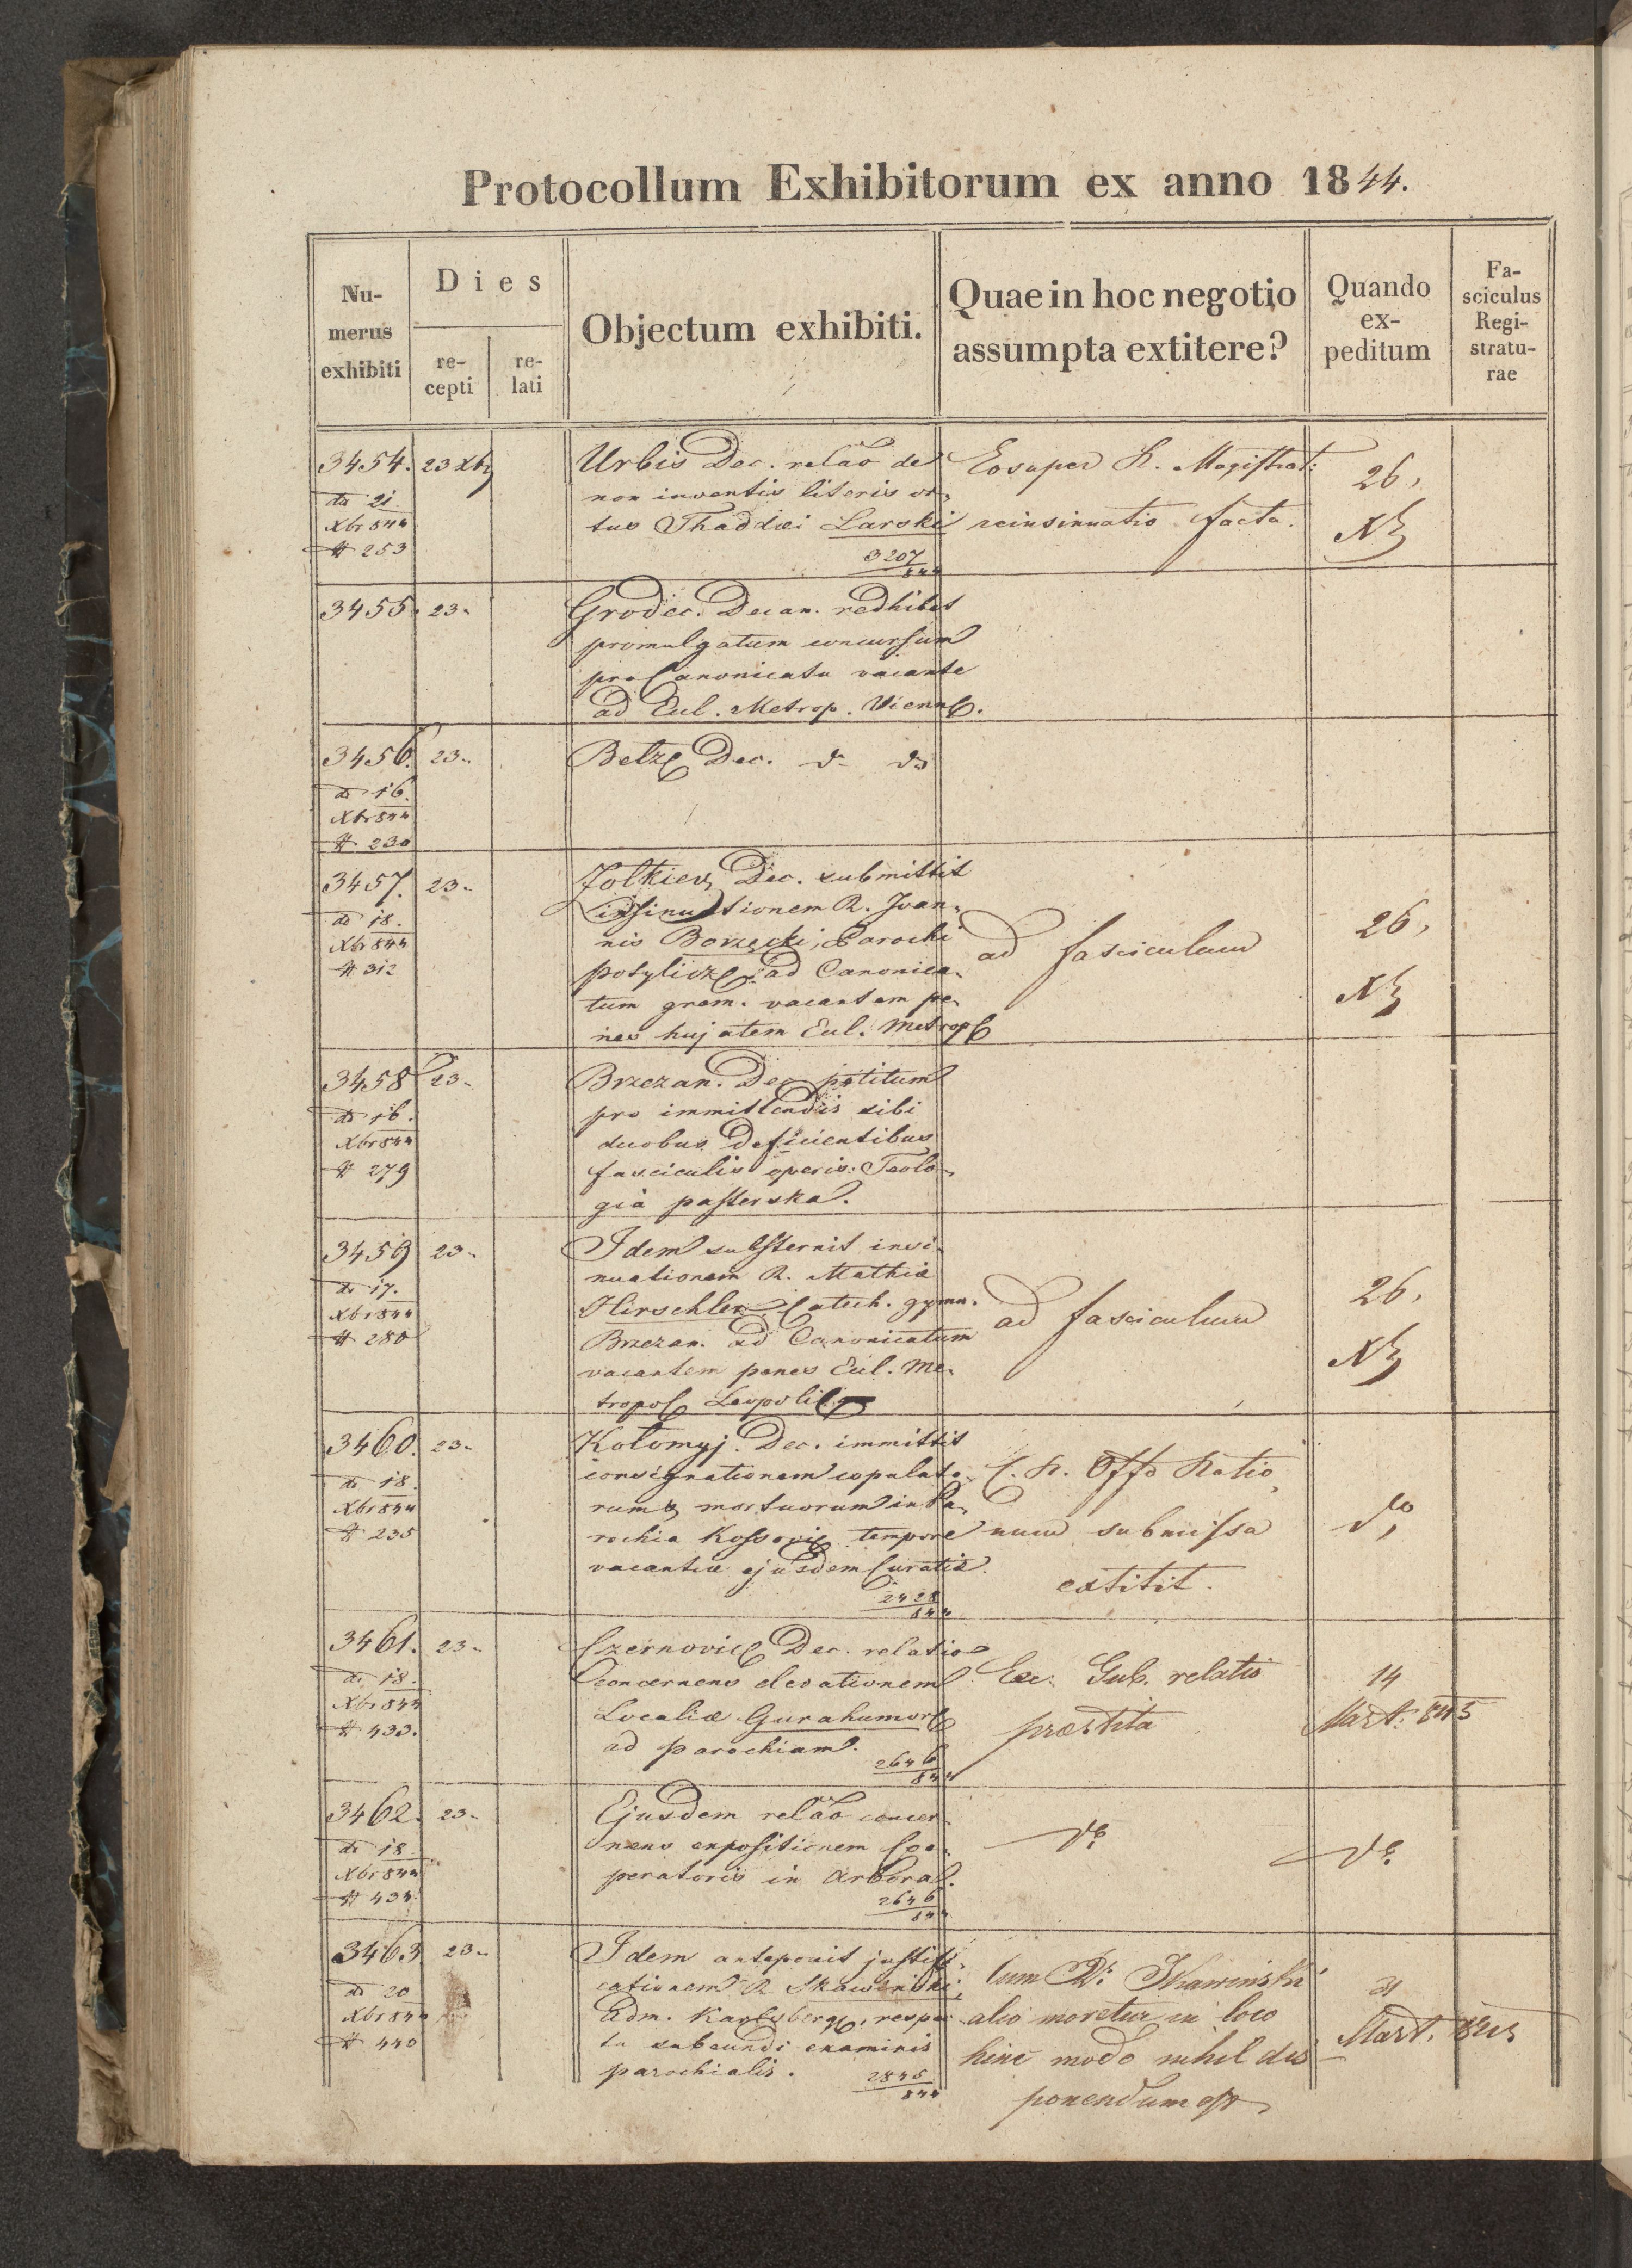 Protocollum Exhibitorum ex anno 1844.
Nu-
merus
exhibiti
Dies
re-
cepti
re-
lati
Objectum exhibiti.
Quae in hoc negotio
assumpta extitere?
Quando
ex-
peditum
Fa-
sciculus
Regi-
stratu-
rae
3454. 23 Xbr
do 21.
Xbr 844
# 253
Urbis Dec. relao de
non inventis literis or-
tus Thaddæi Larski
3207
844
Eosuper K. Magistrat:
reinsinuatio facta.
26,
3455. 23.
Grodec. Decan. redhibet
promulgatum concursum
pro Canonicatu vacante
ad Eccl. Metrop. Vienn.
3456. 23.
do 16.
Xbr 844
# 230
Belz. Dec. do do
3457. 23.
do 18.
Xbr 844
# 312
Zolkiew. Dec. submittit
insinuationem R. Joan-
nis Borzęcki, Parochi
potylicz. ad Canonica-
tum grem. vacantem pe-
nes hujatem Eccl. Metrop.
ad fasciculum
26,
3458 23.
do 16.
Xbr 844
# 279
Brzezan. Dec. petitum
pro immittendis sibi
duobus deficientibus
fasciculis operis: Teolo-
gia pasterska.
3459 23.
do 17.
Xbr 844
# 280
Idem substernit insi-
nuationem R. Mathiæ
Hirschler Catech. gymn.
Brzezan. ad Canonicatum
vacantem penes Eccl. Me-
tropol. Leopoli
ad fasciculum
26.
3460. 23.
do 18.
Xbr 844
# 235
Kołomyj. Dec. immittit
consignationem copulato-
rum & mortuorum in Pa-
rochia Kossovi tempore
vacantiæ ejusdem Curatiæ.
2428
844
C. R. Offo Ratio
num submissa
extitit.
do
3461. 23.
do 18.
Xbr 844
# 433.
Czernovic. Dec. relatio
concernens elevationem
Localiæ Gurahumor
ad parochiam.
2646
844
Exc. Gub. relatio
præstita
14
Mart. 845
3462. 23.
do 18.
Xbr 844
# 434.
Ejusdem relao concer-
nens expositionem Coo-
peratoris in Arbora.
2646
844
do
do
3463 23.
do 20
Xbr 844
# 440
Idem anteponit justifi-
cationem R. Skawinski,
Adm. Karlsberg. respec
tu subeundi examinis
parochialis.
2845
844
Cum Dr Skawinski
alio moretur in loco
hinc modo nihil dis
ponendum est
31
Mart. 845